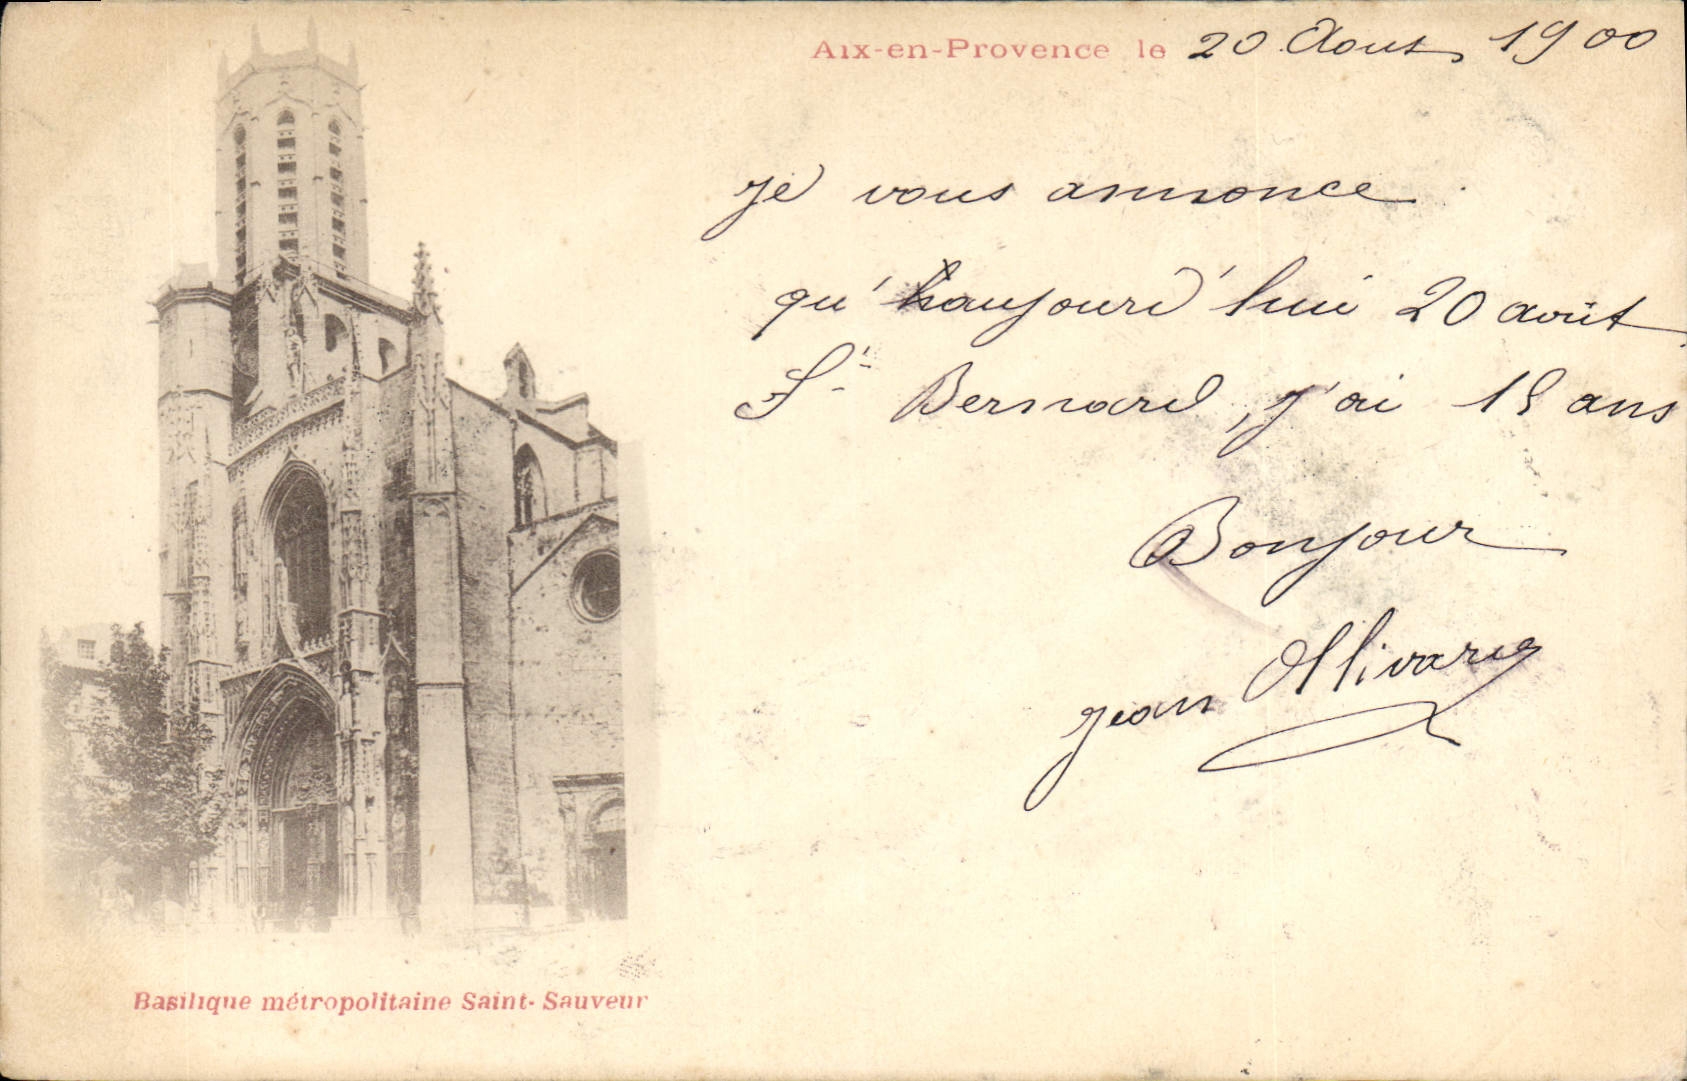 Aix-en-Provence le 20 Aout 1900
je vous annonce
qu'aujourd'hui 20 août
St Bernard, j'ai 15 ans
Bonjour
jean
Basilique métropolitaine Saint-Sauveur